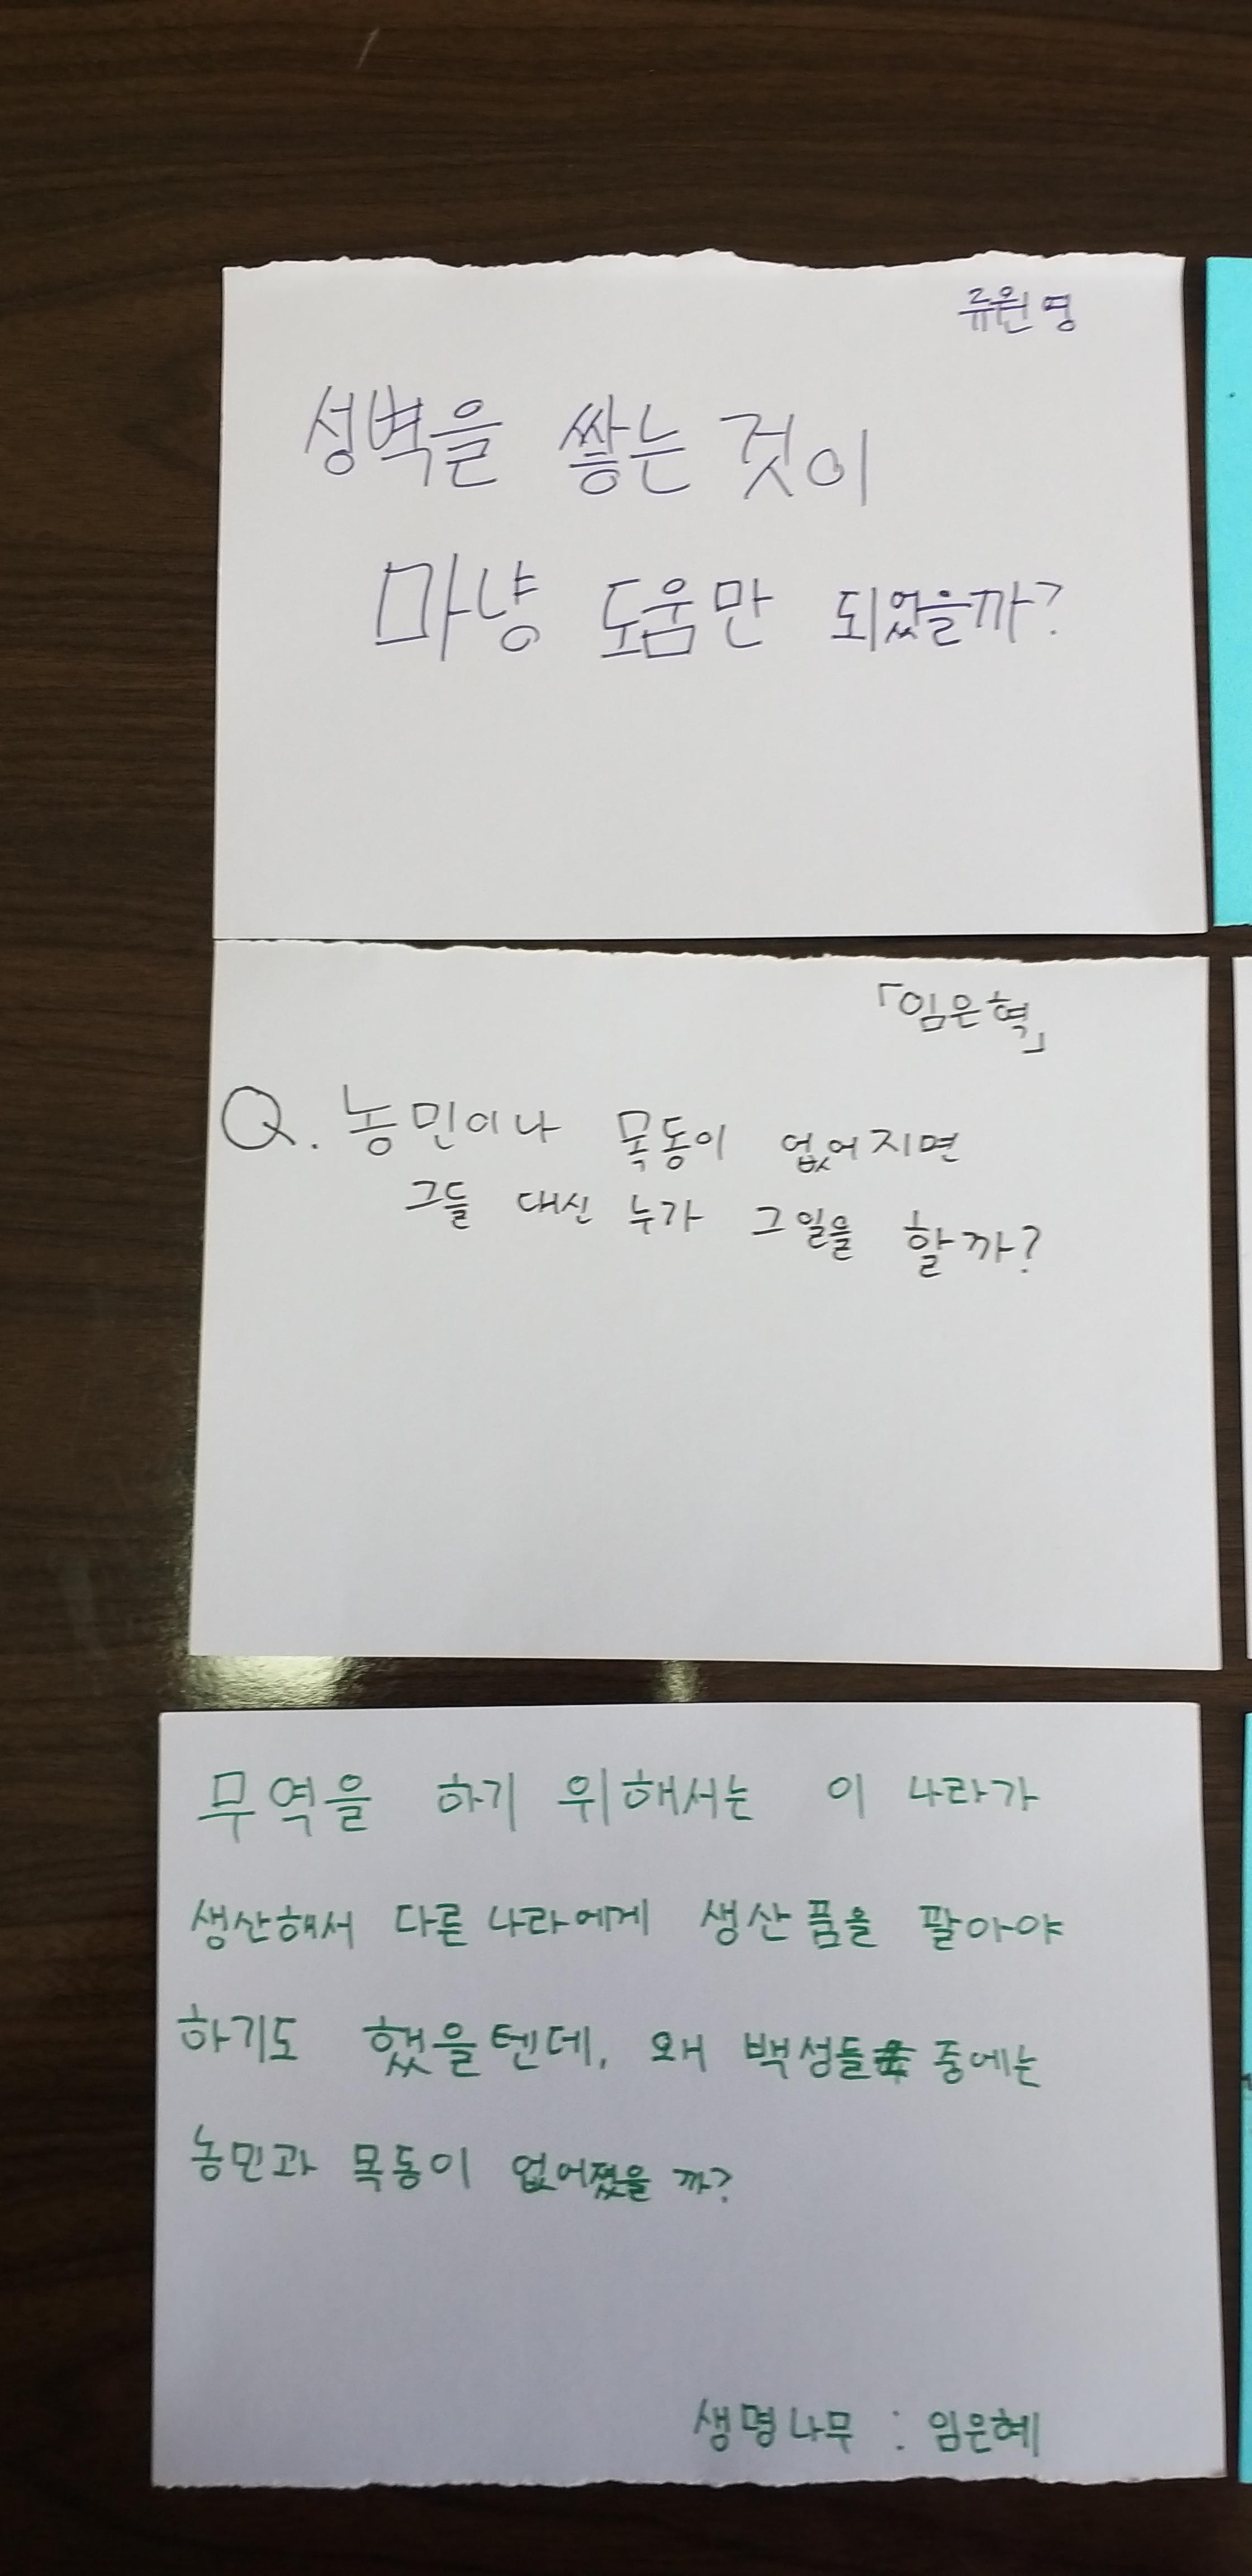 류원영
성벽을 쌓는 것이
마냥 도움만 되었을까?
「임은혁」
Q. 농민이나 목동이 없어지면
그들 대신 누가 그일을 할까?
무역을 하기 위해서는 이 나라가
생산해서 다른 나라에게 생산품을 팔아야
하기도 했을텐데, 왜 백성들 중에는
농민과 목동이 없어졌을까?
생명나무 : 임은혜